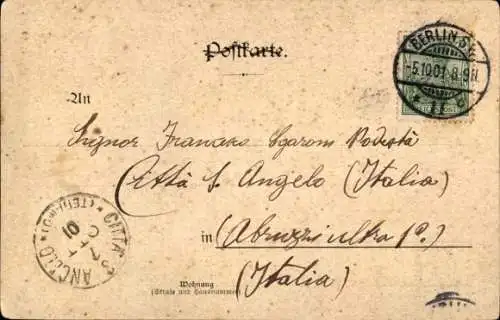 Postkarte.
BERLIN S.W.
-5.10.01. 8-9N.
An
Signor Francesco Sgaroni Podestà
Città S. Angelo (Italia)
in (Abruzzi ultra 1ª.)
(Italia)
CITTÀ S. ANGELO (TERAMO)
01
Wohnung
(Straße und Hausnummer)